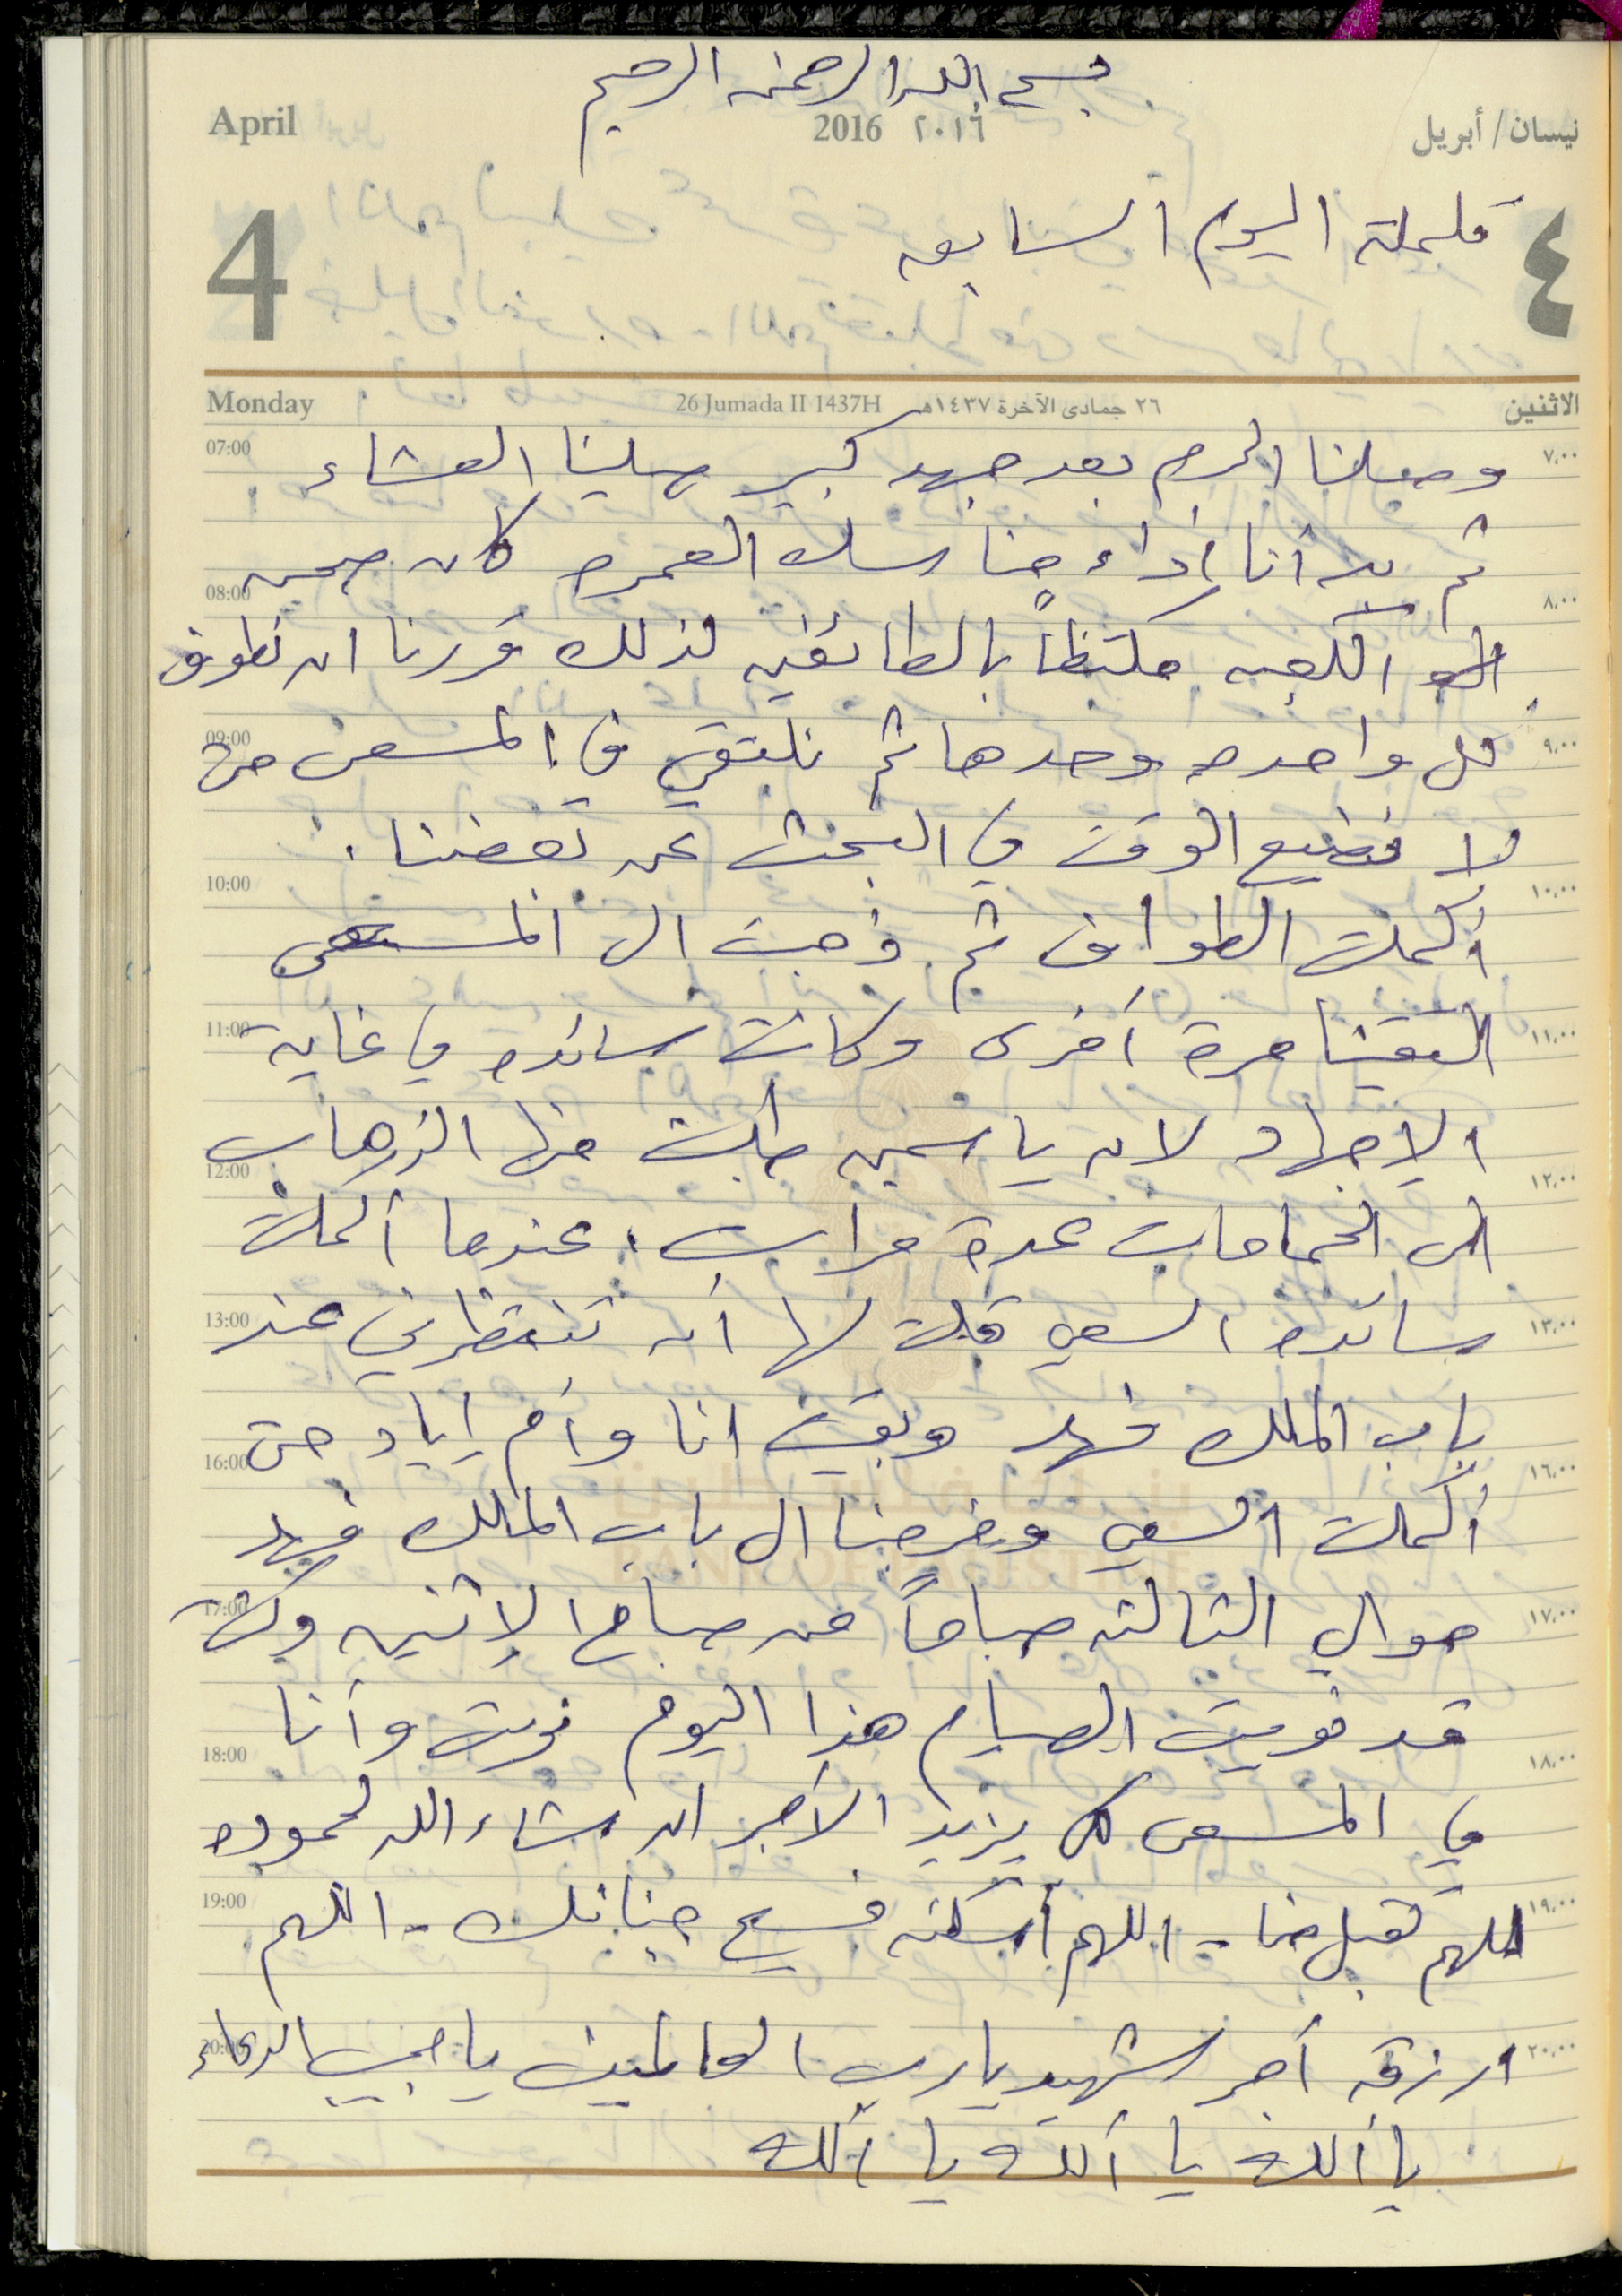 بسم الله الرحمن الرحيم
April 2016 ٢٠١٦ نيسان/أبريل
4 تكملة اليوم السابق ٤
Monday 26 Jumada II 1437H ٢٦ جمادى الآخرة ١٤٣٧هـ الاثنين
07:00 وصلنا الحرم بعد جهد كبير صلينا العشاء ٧،٠٠
ثم بدأنا أداء مناسك العمره كان صحن
08:00 ٨،٠٠
الكعبه مكتظاً بالطائفين لذلك قررنا ان نطوف
09:00 كل واحده وحدها ثم نلتقي في المسعى حتى ٩،٠٠
لا نضيع الوقت في البحث عن بعضنا.
10:00 ١٠،٠٠
أكملت الطواف ثم ذهبت الى المسعى
11:00 التقينا مرة أخرى وكانت سائده في غاية ١١،٠٠
الإجهاد لان ياسمين طلبت منها الذهاب
12:00 ١٢،٠٠
الى الحمامات عدة مرات. عندما أكملت
13:00 سائده السعي قلت لها أن تنتظرني عند ١٣،٠٠
باب الملك فهد وبقيت انا وأم إياد حتى
16:00 ١٦،٠٠
أكملت السعي وخرجنا الى باب الملك فهد
BANK OF PALESTINE
17:00 حوالي الثالثه صباحاً من صباح الإثنين وكنت ١٧،٠٠
قد نويت الصيام هذا اليوم نويت وأنا
18:00 ١٨،٠٠
في المسعى كي يزيد الأجر ان شاء الله لحموده
19:00 اللهم تقبل منا - اللهم أسكنه فسيح جنانك - اللهم ١٩،٠٠
20:00 ارزقه أجر شهيد يا رب العالمين يا مجيب الدعاء ٢٠،٠٠
يا ألله يا ألله يا ألله